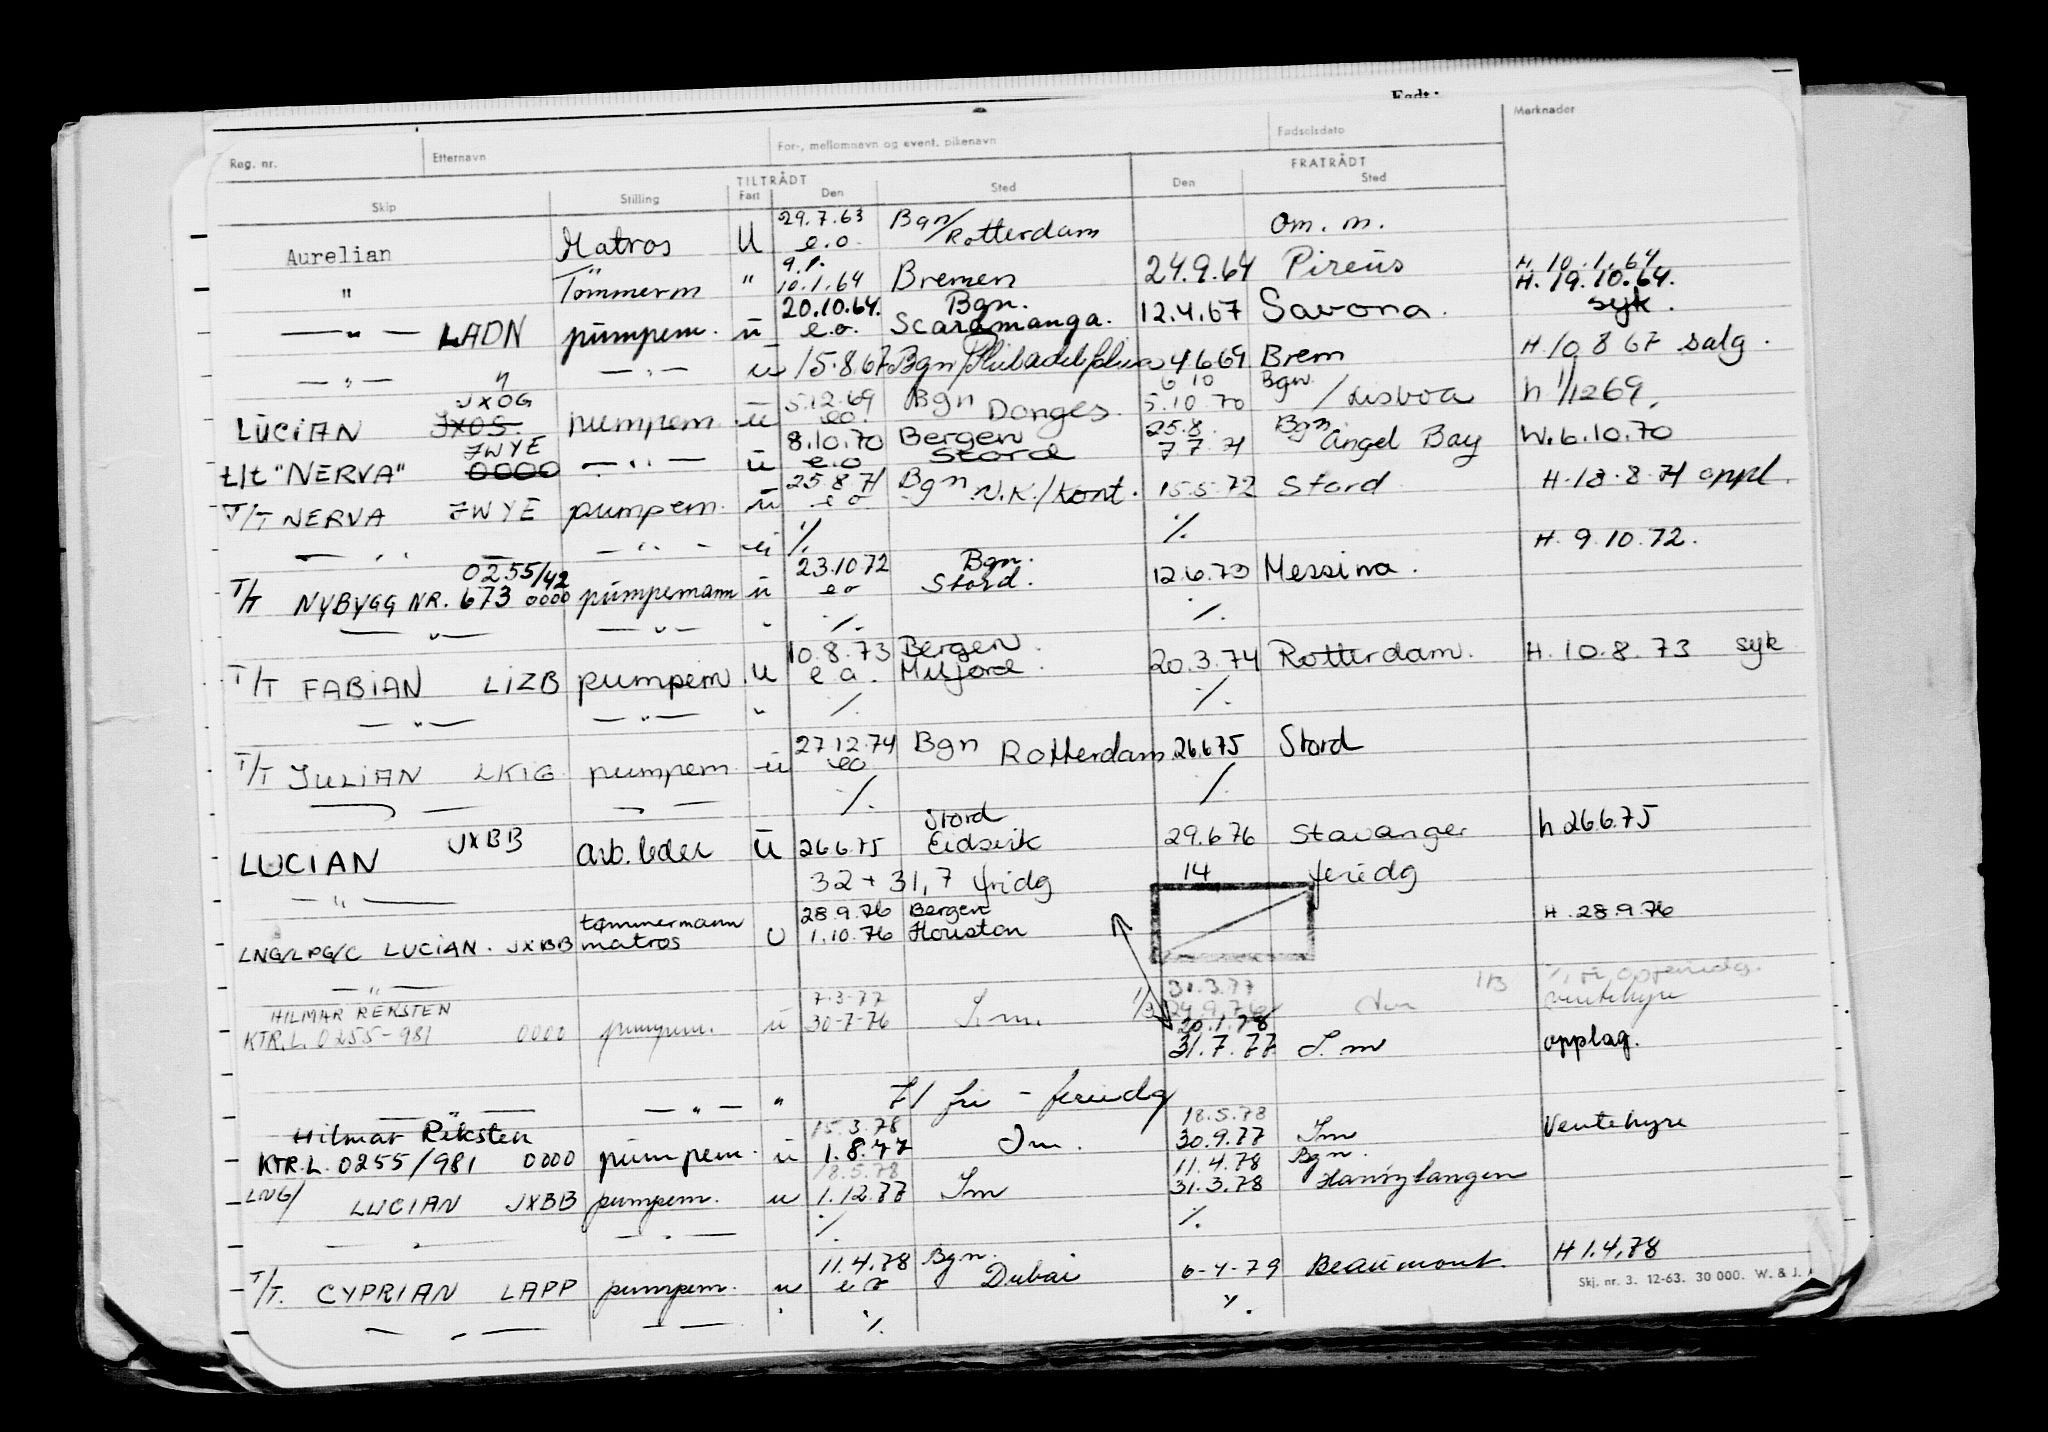 Født:
Reg. nr. Etternavn For-, mellomnavn og event. pikenavn Fødselsdato Merknader
TILTRÅDT FRATRÅDT
Skip Stilling Fart Den Sted Den Sted
29.7.63 Bgn/
Aurelian Matros U e.o. Rotterdam Om. m.
9.1. H. 10.1.64.
" Tömmerm " 10.1.64 Bremen 24.9.64 Pireüs H. 19.10.64.
20.10.64. Bgn. syk.
— " — LADN pümpem. ü e.o. Scaramanga. 12.4.67 Savona.
— " — " — " — ü 15.8.67 Bgn/Philadelphia 4669 Brem H 10 8 67 salg.
JXOG 5.12.69 Bgn 6 10 Bgn.
LÜCIAN JXOS pümpem ü eo. Donges. 5.10.70 / Lisboa h 1/1269.
JWYE 8.10.70 Bergen 25.8. Bgn
t/t "NERVA" 0000 — " — ü e.o Stord 7.7.71 Angel Bay W. 6.10.70
25.8 71 Bgn
T/T NERVA JWYE pümpem. ü e o N.K./Kont. 15.5.72 Stord H. 13.8.71 oppl.
— " — — " — " ·/. ·/. H. 9.10.72.
0255/42 23.10 72 Bgn.
T/T NYBYGG NR. 673 0000 pümpemann ü eo Stord. 12.6.73 Messina.
— " — — " — " ·/. ·/.
10.8.73 Bergen.
T/T FABIAN LIZB pümpem. U e o. Milford. 20.3.74 Rotterdam. H. 10.8.73 syk
— " — — " — " ·/. ·/.
27.12.74 Bgn
T/T JULIAN LKIG pümpem ü eo Rotterdam 26675 Stord
·/. ·/.
Stord
LUCIAN JXBB arb. leder Ü 26675 Eidsvik 29.6 76 Stavanger h 26.6.75
— " — 32 + 31,7 fridg 14 feriedg
tømmermann 28.9.76 Bergen H. 28.9.76
LNG/LPG/C LUCIAN. JXBB matros U 1.10.76 Houston
— " —
31.3.77 1/3
HILMAR REKSTEN 7.3.77 ventehyre
KTR.L. 0255-981 0000 pumpem. ü 30-7-76 I.m.
20.1.78
31.7.77 I. m opplag.
— " — — " — " 71 fri - feriedg
Hilmar Reksten 15.3.78 18.5.78
KTR.L. 0255/981 0000 pümpem. ü 1.8.77 Im. 30.9.77 Im Ventehyre
18.5.78 11.4.78 Bgn.
LNG/ LUCIAN JXBB pümpem. u 1.12.77 Im 31.3.78 Hanöytangen
— " — — " — ·/. ·/.
11.4.78 Bgn.
T/T. CYPRIAN LAPP pümpem. u e o Dubai 6-4-79 Beaümont. H 1.4.78
— " — — — " ·/. ·/.
Skj. nr. 3. 12-63. 30 000. W. & J.